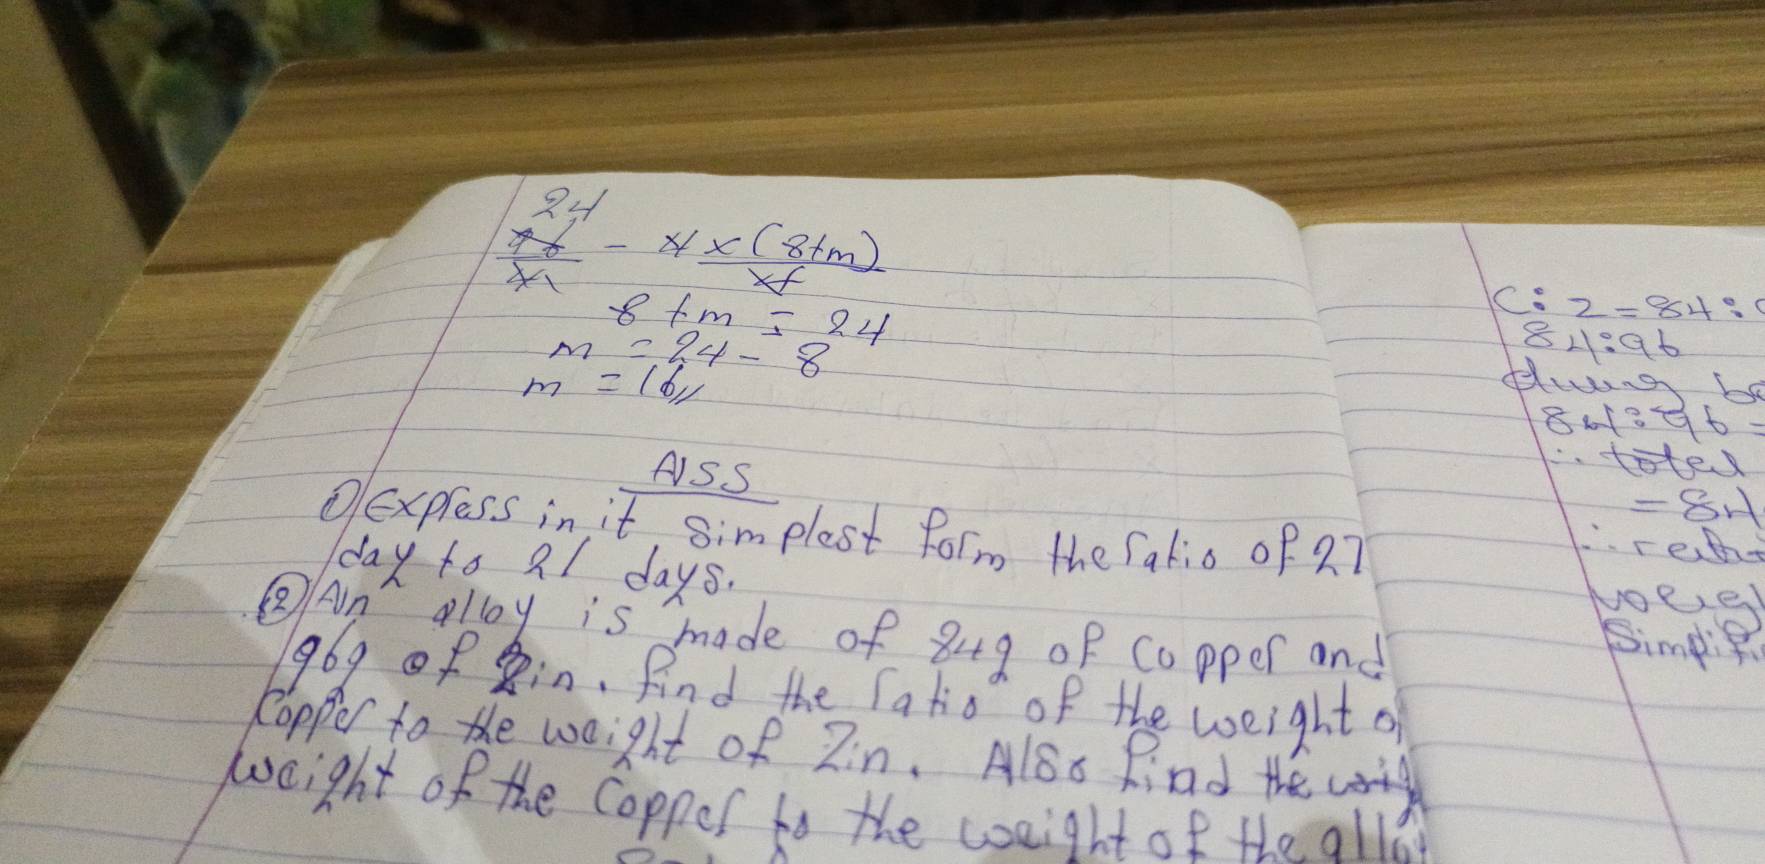 24
96 - 4 x (8+m)
8 + m = 24
m = 24 - 8
m = 16
ASS
① Express in it simplest form the ratio of 27
day to 21 days.
② An alloy is made of 84g of Copper and
96g of Zin. find the ratio of the weight of
Copper to the weight of Zin. Also find the
weight of the Copper to the weight of the alloy
C: Z = 84:
84:96
84:96 =
∴ total
= 84
∴
Simplif